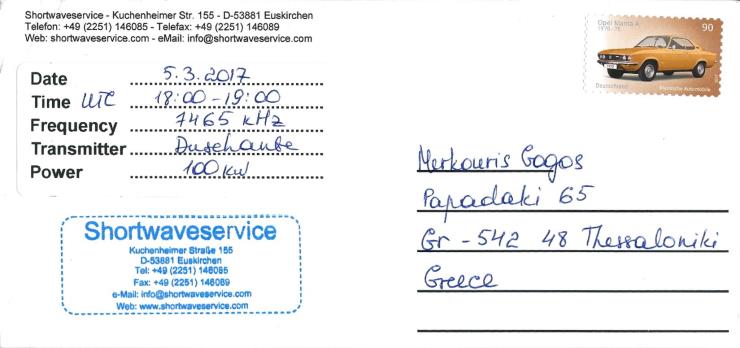 Shortwaveservice - Kuchenheimer Str. 155 - D-53881 Euskirchen
Telefon: +49 (2251) 146085 - Telefax: +49 (2251) 146089
Web: shortwaveservice.com - eMail: info@shortwaveservice.com
Date 5.3.2017
Time UTC 18:00-19:00
Frequency 7465 kHz
Transmitter Duschanbe
Power 100 kW
Shortwaveservice
Kuchenheimer Straße 155
D-53881 Euskirchen
Tel: +49 (2251) 146085
Fax: +49 (2251) 146089
e-Mail: info@shortwaveservice.com
Web: www.shortwaveservice.com
Opel Manta A
1970-75
90
Deutschland
Klassische Automobile
Merkouris Gogos
Papadaki 65
Gr - 542 48 Thessaloniki
Greece